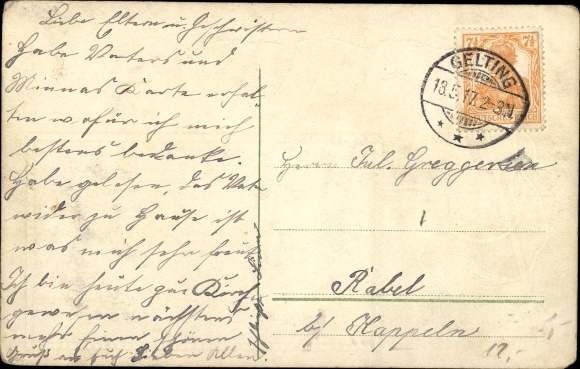 Liebe Eltern u. Geschwistern
Habe Vaters und
Minnas Karte erhal-
ten wofür ich mich
bestens bedanke.
Habe gelesen, das Vater
wider zu Hause ist
was mich sehr freut
Ich bin heute zur Kirch
gewesen nächstens
mehr Einen schönen
Gruß an Euch Lieben Allen.
7½ 7½
DEUTSCHES REICH
GELTING
18.5.17. 2-3N.
* * *
Herrn Jul. Greggersen
1
Rabel
b/ Kappeln
12,-